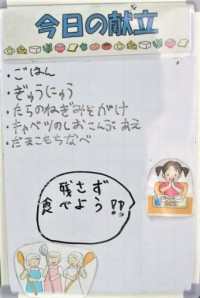 今日の献立
・ごはん
・ぎゅうにゅう
・たらのねぎみそがけ
・キャベツのしおこんぶあえ
・だまこもちなべ
残さず
食べよう!!